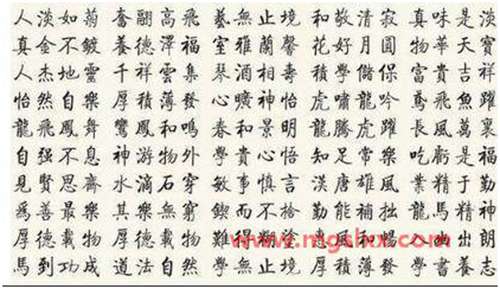 人淡如菊 奮翮高飛 藝無止境 和敬清寂 真味是淡
真金不鍍 養德澤福 室雅蘭馨 花好月圓 物華天寶
人杰地靈 千祥雲集 琴 相壽 積學儲 富貴吉祥
怡然自樂 厚積薄發 心曠神怡 虎嘯龍吟 鳶飛魚躍
龍飛鳳舞 鸞鳳和鳴 春和景明 龍騰虎躍 長風萬裏
自强不息 神游物外 學貴心悟 知足常樂 吃虧是福
見賢思齋 水滴石穿 敏事慎言 漢唐雄風 業精于勤
爲善最樂 其樂無窮 鍥而不捨 勤能補拙 龍馬精神
厚德載物 難得糊塗 惠風和暢
馬到功成 道法自然 學無止境 厚積薄發 書養志